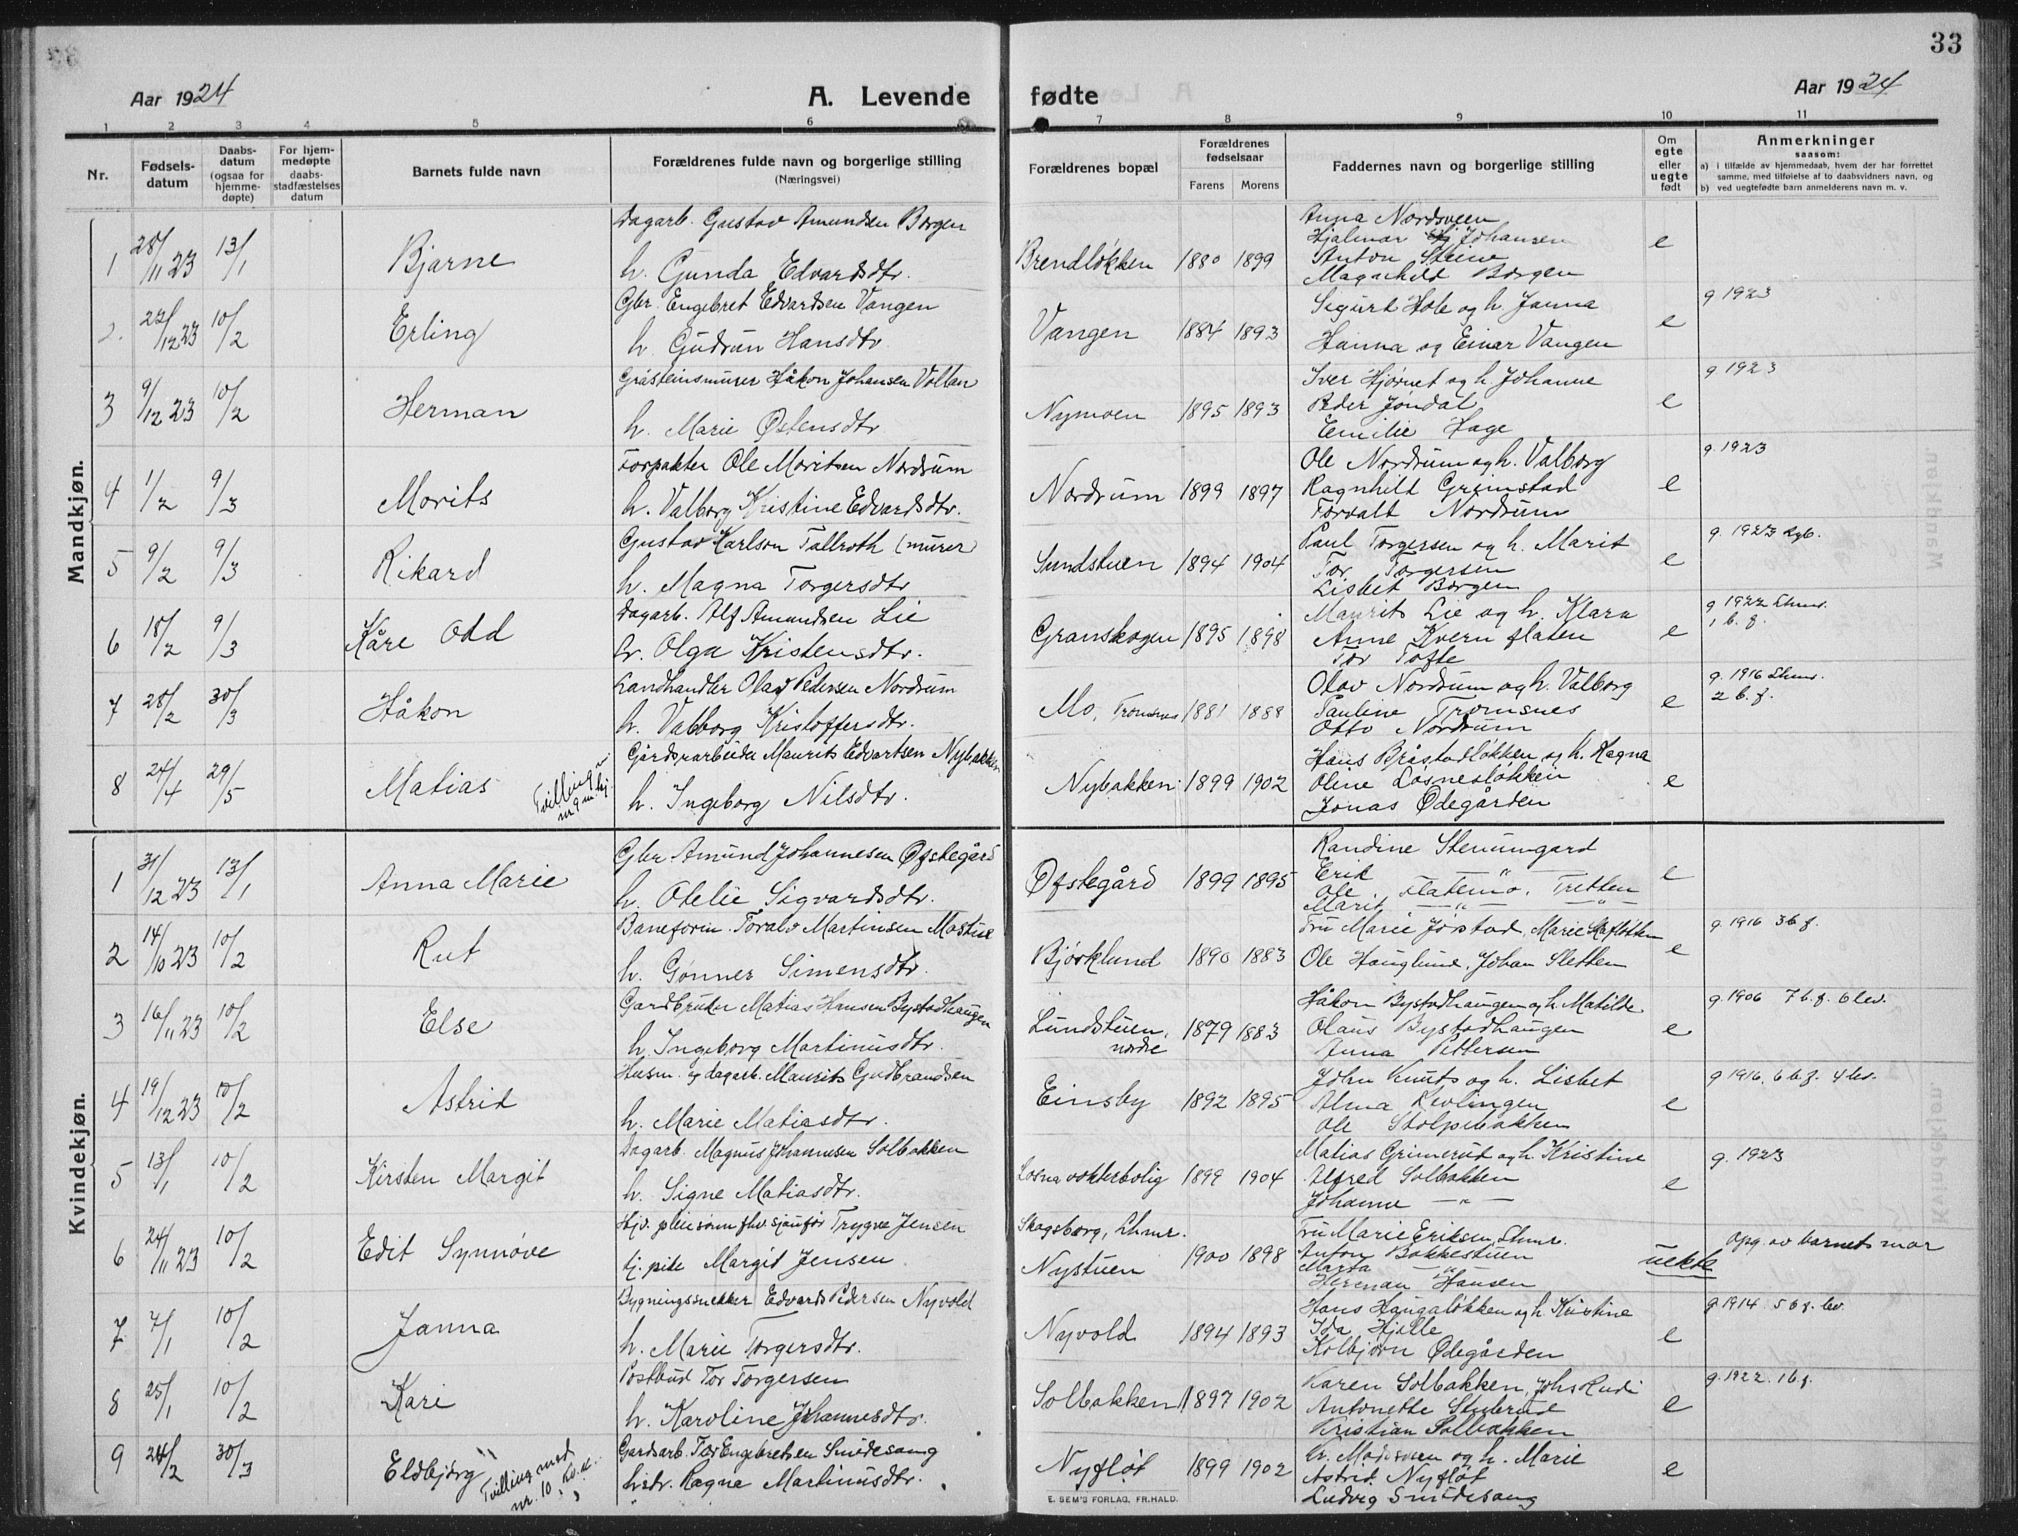 33
Aar 1924
A. Levende fødte
Aar 1924
1 2 3 4 5 6 7 8 9 10 11
Nr.
Fødsels-
datum
Daabs-
datum
(ogsaa for
hjemme-
døpte)
For hjem-
medøpte
daabs-
stadfæstelses
datum
Barnets fulde navn
Forældrenes fulde navn og borgerlige stilling
(Næringsvei)
Forældrenes bopæl
Forældrenes
fødselsaar
Farens Morens
Faddernes navn og borgerlige stilling
Om
egte
eller
uegte
født
Anmerkninger
saasom:
a) i tilfælde av hjemmedaab, hvem der har forrettet
samme, med tilføielse af to daabsvidners navn, og
b) ved uegtefødte barn anmelderens navn m. v.
Mandkjøn.
1 28/11 23 13/1 Bjarne
Dagarb. Gustav Amundsen Borgen
h. Gunda Edvardsdtr.
Brendløkken 1880 1899
Anna Nordsveen
Hjalmar Johansen
Anton Steine
Magnhild Borgen
e
2. 22/12 23 10/2 Erling
Gbr. Engebret Edvardsen Vangen
h. Gudrun Hansdtr.
Vangen 1884 1893
Sigurd Hole og h. Janna
Hanna og Einar Vangen
e
g 1923
3 9/12 23 10/2 Herman
Gråsteinsmurer Håkon Johansen Voltan
h. Marie Østensdtr.
Nymoen 1895 1893
Iver Hjørnet og h. Johanne
Peder Jøndal
Emilie Hage
e
g 1923
4 1/2 9/3 Morits
Forpakter Ole Moritsen Nordrum
h. Valborg Kristine Edvardsdtr.
Nordrum 1899 1897
Ole Nordrum og h. Valborg
Ragnhild Grimstad
Torvald Nordrum
e
g. 1923
5 9/2 9/3 Rikard
Gustav Karlson Tallroth (murer)
h. Magna Torgersdtr
Sundstuen 1894 1904
Paul Torgersen og h. Marit
Tor Torgersen
Lisbet Borgen
e
g. 1923
6 18/2 9/3 Kåre Odd
Dagarb. Alf Amundsen Lie
h. Olga Kristensdtr.
Granskogen 1895 1898
Maurits Lie og h. Klara
Anne Kvernflaten
Tor Tofte
e
g 1922 Lhmr.
1 b. f.
7 28/2 30/3 Håkon
Landhandler Olav Pedersen Nordrum
h. Valborg Kristoffersdtr.
Mo, Tromsnes 1881 1888
Olav Nordrum og h. Valborg
Pauline Tromsnes
Otto Nordrum
e
g. 1916 Lhmr.
2 b. f.
8 24/4 29/5 Matias
Gårdsarbeider Maurits Edvartsen Nybakken
h. Ingeborg Nilsdtr.
Nybakken 1899 1902
Hans Bråstadløkken og h. Ragna
Oline Losnesløkken
Jonas Ødegården
e
Kvindekjøn.
1 31/12 23 13/1 Anna Marie
Gbr Amund Johannesen Øfstegård
h. Otelie Sigvardsdtr.
Øfstegård 1899 1895
Randine Stenumgard
Erik — " —
Ole Flatemo, Tretten
Marit — " — — " —
e
2 14/10 23 10/2 Rut
Baneform. Toralv Martinsen
h. Gønner Simensdtr.
Bjørklund 1890 1883
Fru Marie Jøstad, Marie
Ole Hauglund, Johan Sletten
e
g. 1916 3 b f.
3 16/11 23 10/2 Else
Gardbruker Matias Hansen Bystadhaugen
h. Ingeborg Martinusdtr.
Lundstuen,
nordre
1879 1883
Håkon Bystadhaugen og h. Matilde
Olaus Bystadhaugen
Anna Pettersen
e
g. 1906 7 b. f. 6 lev.
4 19/12 23 10/2 Astrid
Husm. og dagarb. Maurits Gudbrandsen
h. Marie Matiasdtr.
Einsby 1892 1895
John Knuts og h. Lisbet
Alma Kvolingen
Ole Stolpebakken
e
g 1916. 6 b. f. 4 lev.
5 13/1 10/2 Kirsten Margit
Dagarb. Magnus Johannesen Solbakken
h. Signe Matiasdtr.
Losna vokterbolig 1899 1904
Matias Grimerud og h. Kristine
Alfred Solbakken
Johanne — " —
e
g. 1923
6 24/11 23 10/2 Edit Synnøve
Hjv. pleiesønn fhv. sjauför Trygve Jensen
tj. pike Margit Jensen
Skogsborg, Lhmr.
Nystuen
1900 1898
Fru Marie Eriksen, Lhmr.
Anton Bakkestuen
Marta — " —
Herman Hansen
uekte
Opg. av barnets mor
7 7/1 10/2 Janna
Bygningssnekker Edvard Pedersen Nyvold
h. Marie Torgersdtr.
Nyvold 1894 1893
Hans Haugaløkken og h. Kristine
Ida Hjelle
Kolbjørn Ødegården
e
g. 1914. 5 b f. lev.
8 25/1 10/2 Kari
Postbud Tor Torgersen
h. Karoline Johannesdtr.
Solbakken 1897 1902
Karen Solbakken, Johs Rudi
Antonette Stuberud
Kristian Solbakken
e
g. 1922. 1 b f.
9 24/2 30/3 Eldbjørg
Tvilling med
nr. 10
Gardsarb. Tor Engebretsen Smidesang
h. Ragna Martinusdtr.
Nyfløt 1899 1902
Kr. Modesveen og h. Marie
Astrid Nyfløt
Ludvig Smidesang
e
E. SEM'S FORLAG, FR.HALD.